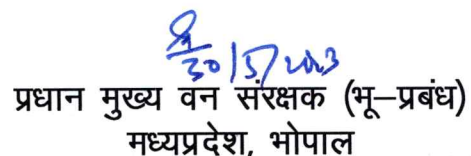 30/5/2023
प्रधान मुख्य वन संरक्षक (भू–प्रबंध)
मध्यप्रदेश, भोपाल